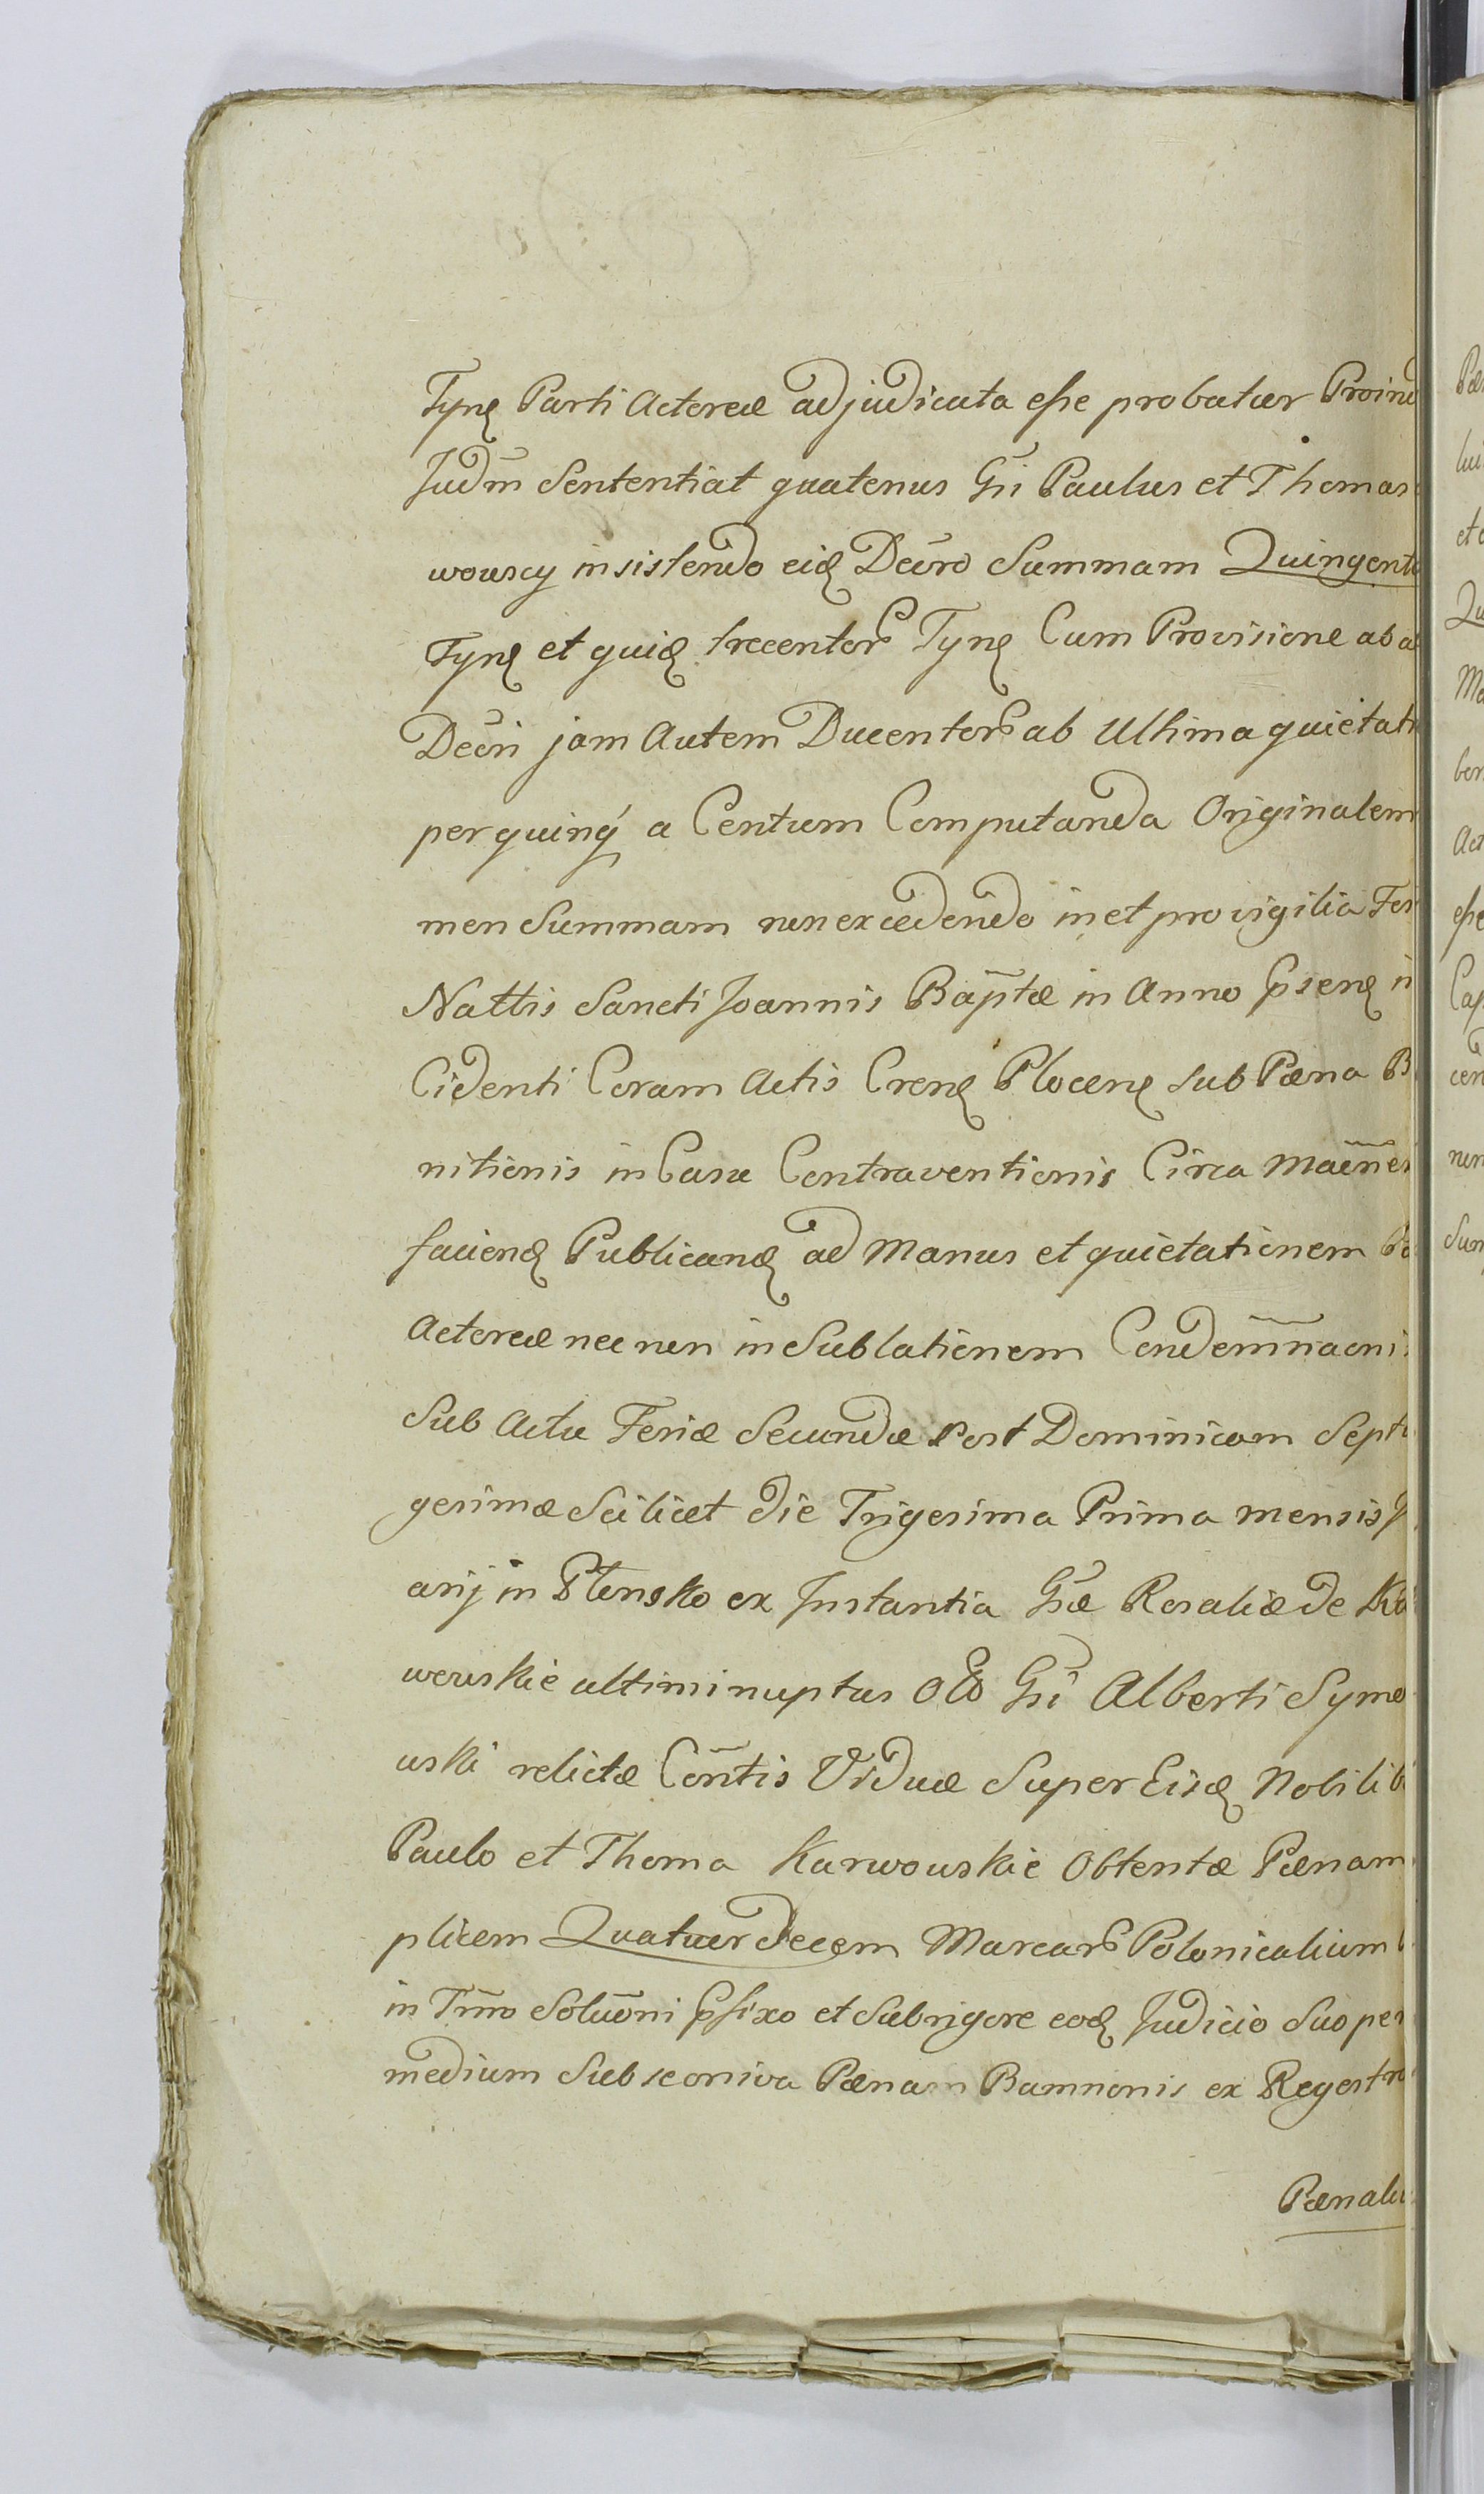 Tynę Parti Actoreæ adjudicata esse probatur Proind
Judm̄ Sententiat quatenus Gsi Paulus et Thomas
wowscy insistendo eidę Decr̄o Summam Quingento
Tynę et quidę trecentor Tynę Cum Provisione ab a
Decr̄i jam Autem Ducentor ab Ultima quietati
per quinq́ a Centum Computanda Originalem
men Summam non excedendo in et pro vigilia Fes
Nattis Sancti Joannis Bap̄tæ in Anno psenę in
Cidenti Coram Actis Crenę Plocenę sub Pæna B
nitionis in Casu Contraventionis Circa Mām̄en
faciendę Publicandę ad Manus et quietationem Pa
Actoreæ nec non in Sublationem Condem̄naoni
Sub Actu Feriæ Secundæ Post Dominicam Septu
gesimæ Scilicet die Trigesima Prima mensis J
arij in Płonsko ex Instantia Gsæ Rosaliæ de Ka
wowskie ultimi nuptus Olo Gsi Alberti Symo
wski relictæ Con̄tis Viduæ Super Eisdę Nobilib
Paulo et Thoma Karwowskie Obtentæ Pænam
plicem Quatuordecem Marcar Polonicalium
in Tm̄o Solūoni pfixo et Sub rigore eodę Judicio Suo per
medium Subseoriva Pænam Bannonis ex Regestro
Pænalu
Pæ
lui
et
Qu
Ma
ber
Act
esse
Cap
cen
non
Sum